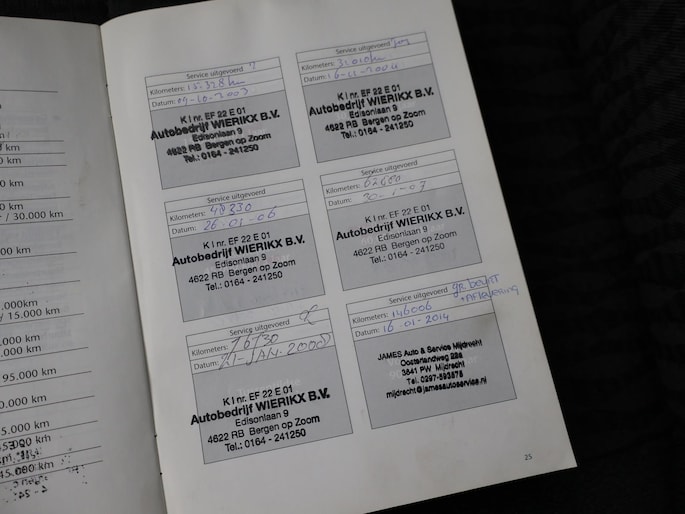 0 km
0 km
0 km
r / 30.000 km
00 km
000km
/ 15.000 km
00 km
95.000 km
5.000 km
45.000 km
00 km
45.000 km
Service uitgevoerd
Kilometers: 15.328 km
Datum: 09-10-2003
K I nr. EF 22 E 01
Autobedrijf WIERIKX B.V.
Edisonlaan 9
4622 RB Bergen op Zoom
Tel.: 0164 - 241250
Service uitgevoerd
Kilometers: 31.010 km
Datum: 16-11-2004
K I nr. EF 22 E 01
Autobedrijf WIERIKX B.V.
Edisonlaan 9
4622 RB Bergen op Zoom
Tel.: 0164 - 241250
Service uitgevoerd
Kilometers: 48330
Datum: 26-01-06
K I nr. EF 22 E 01
Autobedrijf WIERIKX B.V.
Edisonlaan 9
4622 RB Bergen op Zoom
Tel.: 0164 - 241250
Service uitgevoerd
Kilometers: 62680
Datum: 30-1-07
K I nr. EF 22 E 01
Autobedrijf WIERIKX B.V.
Edisonlaan 9
4622 RB Bergen op Zoom
Tel.: 0164 - 241250
Service uitgevoerd
Kilometers: 76730
Datum: 21-JAN-2008
K I nr. EF 22 E 01
Autobedrijf WIERIKX B.V.
Edisonlaan 9
4622 RB Bergen op Zoom
Tel.: 0164 - 241250
Service uitgevoerd gr. beurt
Kilometers: 146006 + AFlevering
Datum: 16-01-2014
JAMES Auto & Service Mijdrecht
Oosterlandweg 22a
3641 PW Mijdrecht
Tel. 0297-593878
mijdrecht@jamesautoservice.nl
25